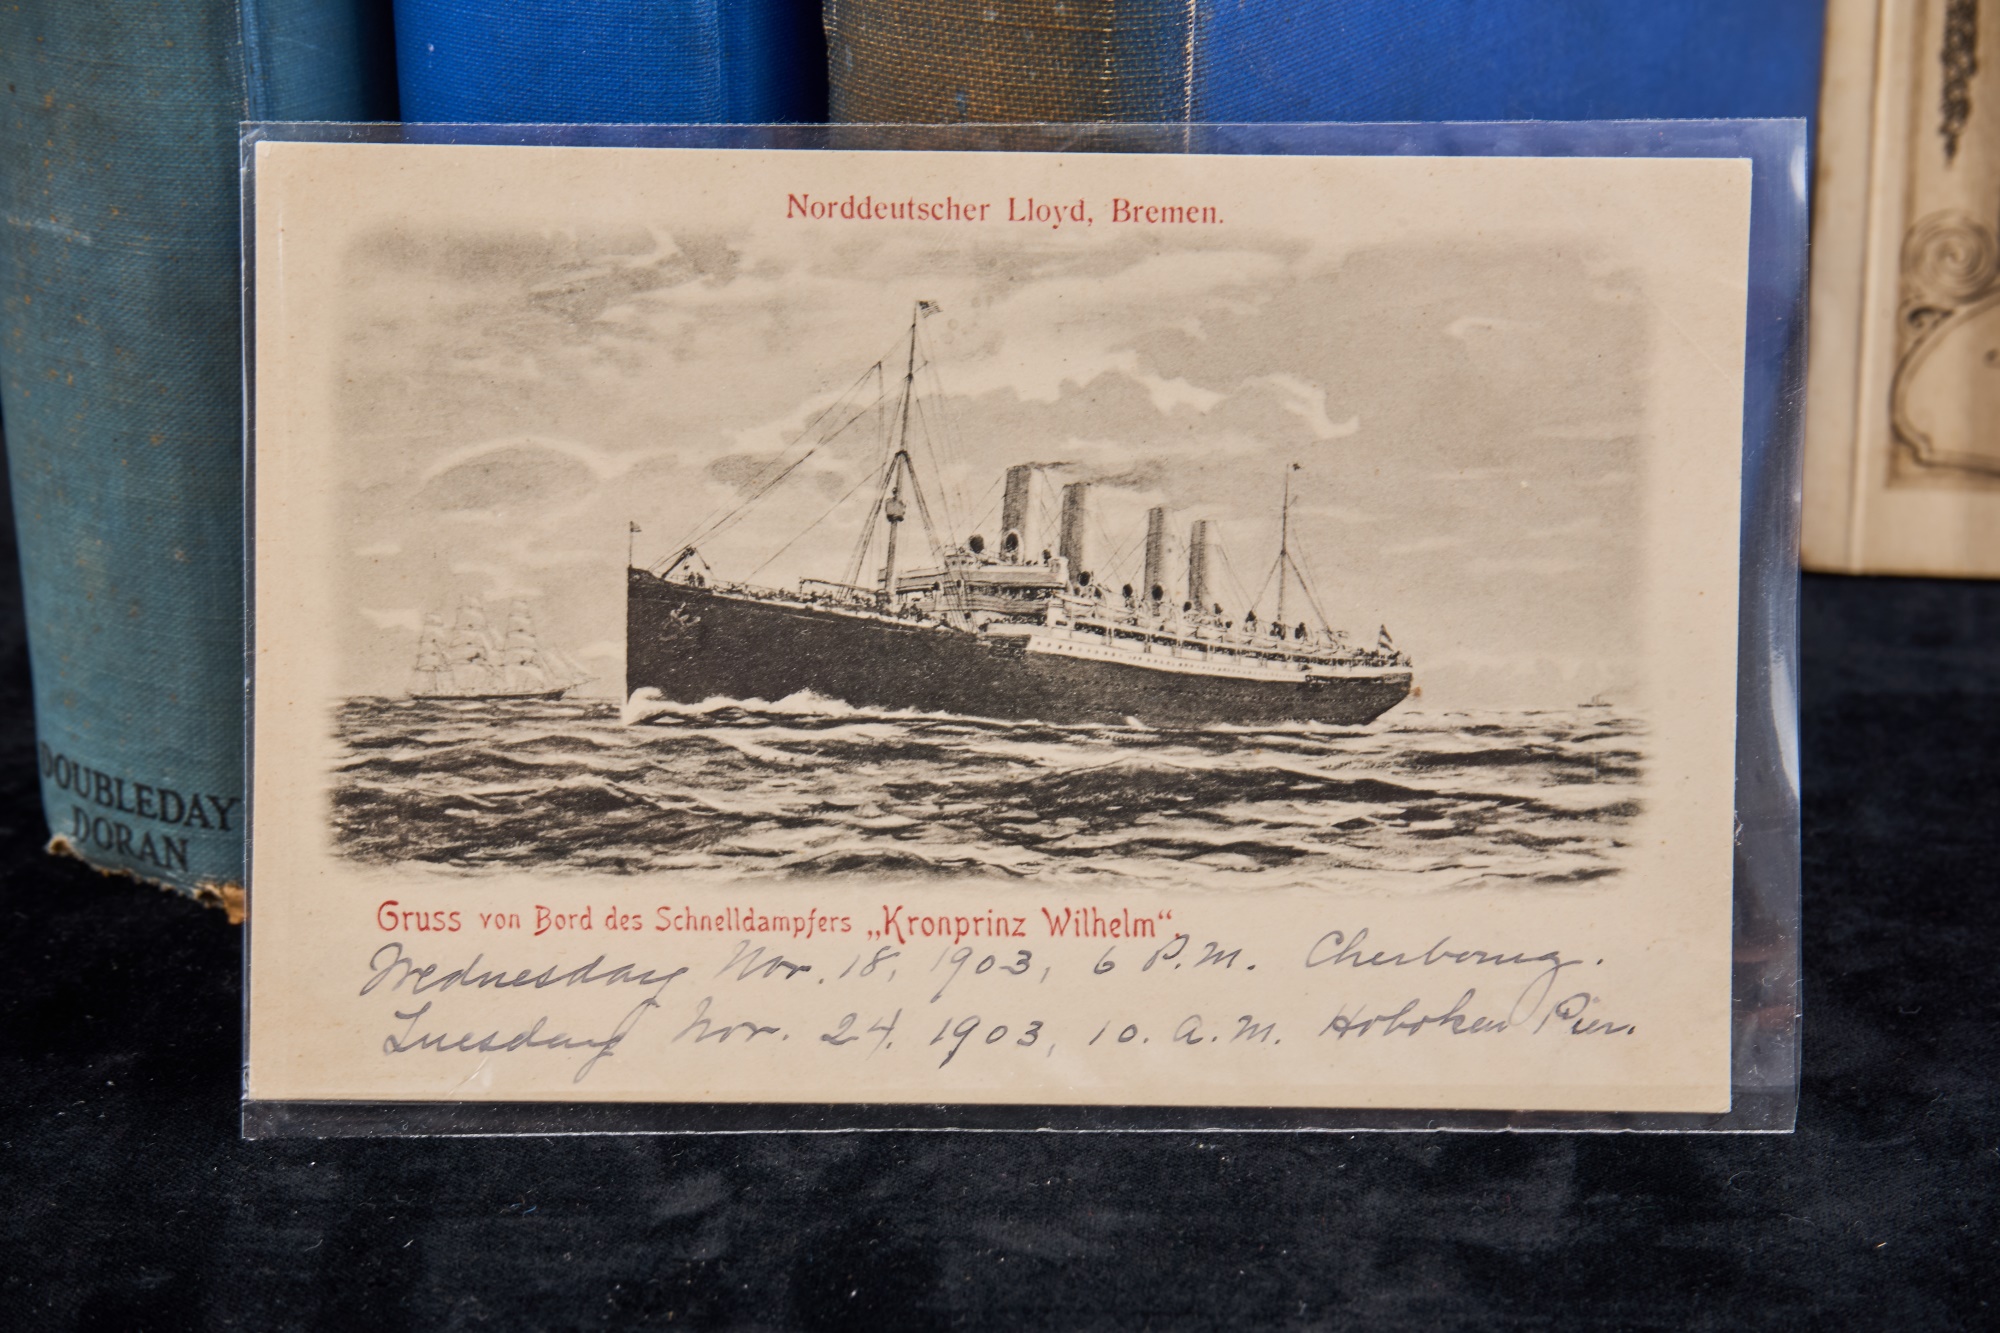 Norddeutscher Lloyd, Bremen.
Gruss von Bord des Schnelldampfers „Kronprinz Wilhelm“.
Wednesday Nov. 18, 1903, 6 P.M. Cherbourg.
Tuesday Nov. 24, 1903, 10. A.M. Hoboken Pier.
DOUBLEDAY
DORAN